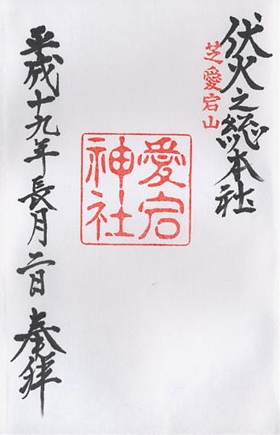 伏火之総本社
芝愛宕山
愛宕
神社
平成十九年長月二日
奉拝